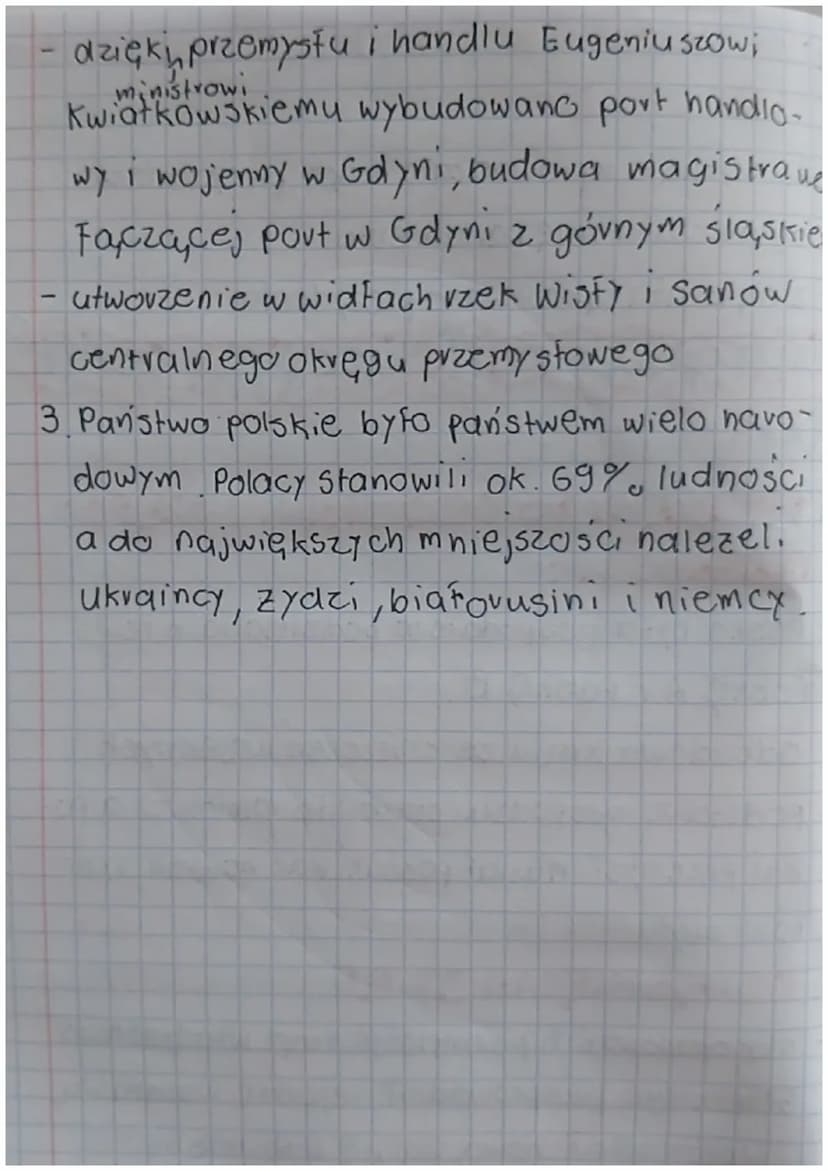 - dzięki przemysłu i handlu Eugeniuszowi
ministrowi
Kwiatkowskiemu wybudowano port handlo-
wy i wojenny w Gdyni, budowa magistrale
łączącej port w Gdyni z górnym śląskie
- utworzenie w widłach rzek Wisły i sanów
centralnego okręgu przemysłowego
3. Państwo polskie było państwem wielo naro-
dowym. Polacy stanowili ok. 69% ludności
a do największych mniejszości nalezeli
ukraincy, zydzi, białorusini i niemcy.